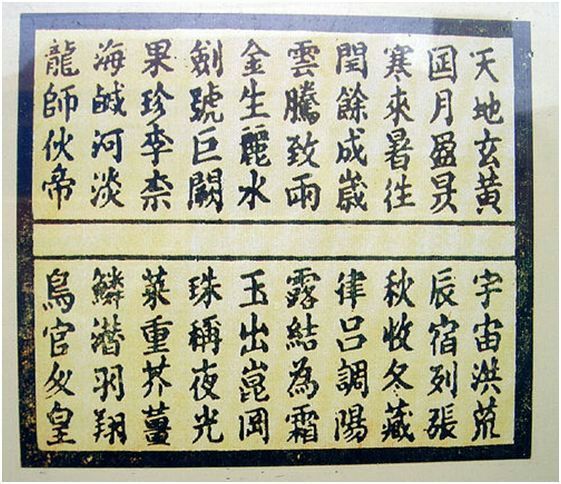 天地玄黃
宇宙洪荒
囸月盈昃
辰宿列張
寒來暑徃
秋收冬藏
閏餘成歲
律呂調陽
雲騰致雨
露結為霜
金生麗水
玉出崑岡
劍號巨闕
珠稱夜光
果珍李柰
菜重芥薑
海鹹河淡
鱗潛羽翔
龍師伙帝
鳥官皇